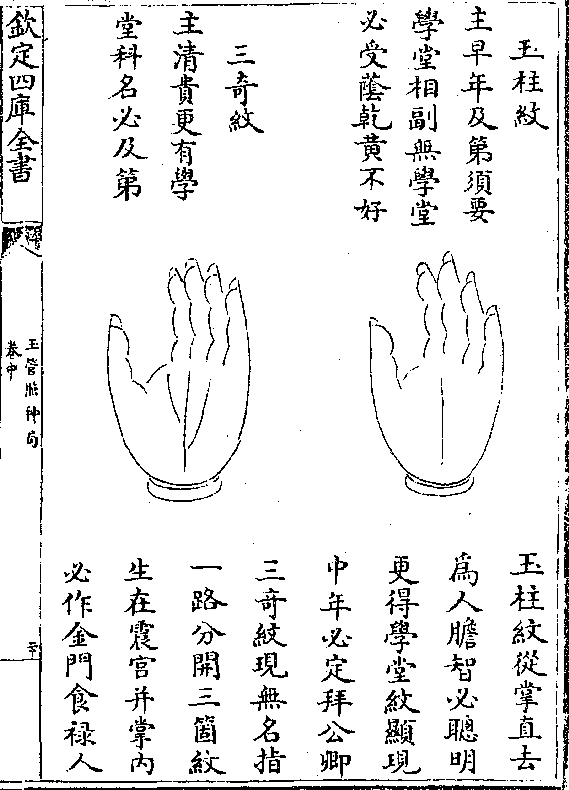 玉柱紋
主早年及第須要
學堂相副無學堂
必受蔭乾黃不好
三奇紋
主清貴更有學
堂科名必及第
玉柱紋從掌直去
爲人膽智必聰明
更得學堂紋顯現
中年必定拜公卿
三奇紋現無名指
一路分開三箇紋
生在震宮并掌内
必作金門食禄人
欽定四庫全書
玉管照神局
卷中